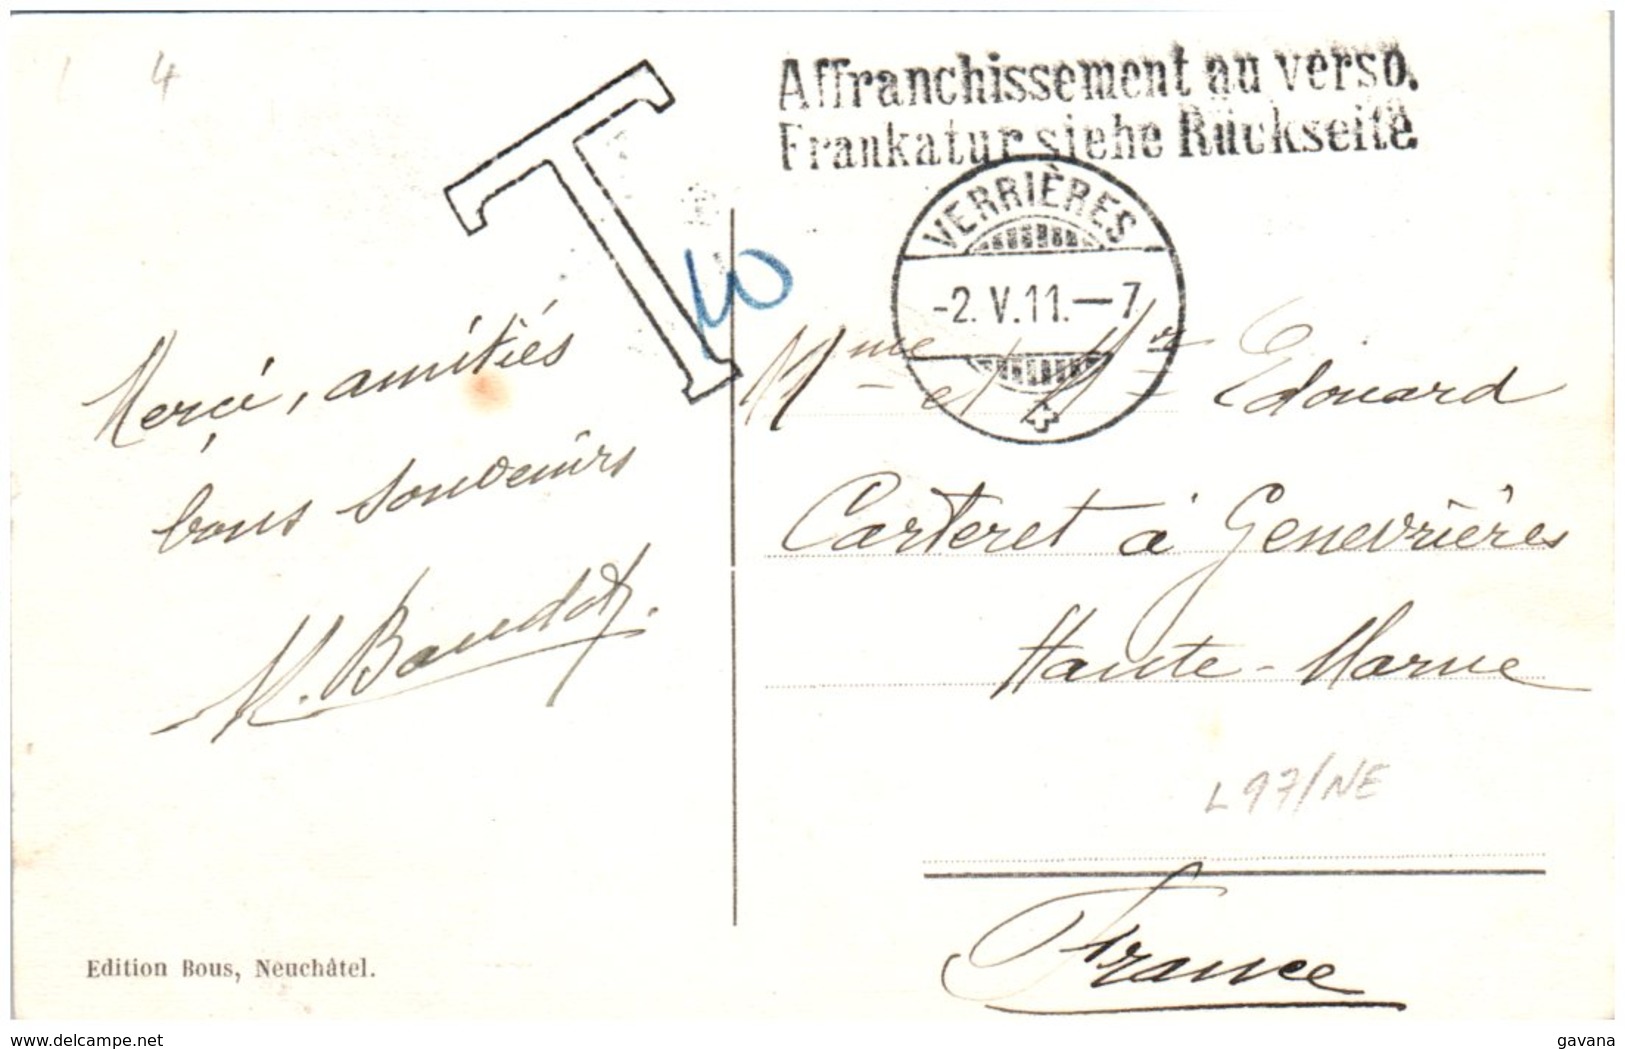 L 4
Affranchissement au verso.
Frankatur siehe Rückseite.
T
10
VERRIÈRES
-2.V.11.-7
Merci, amitiés
bons souvenirs
M. Baudot.
Mme et Mr Edouard
Carteret à Genevrières
Haute-Marne
L97/NE
France
Edition Bous, Neuchâtel.
www.delcampe.net
gavana